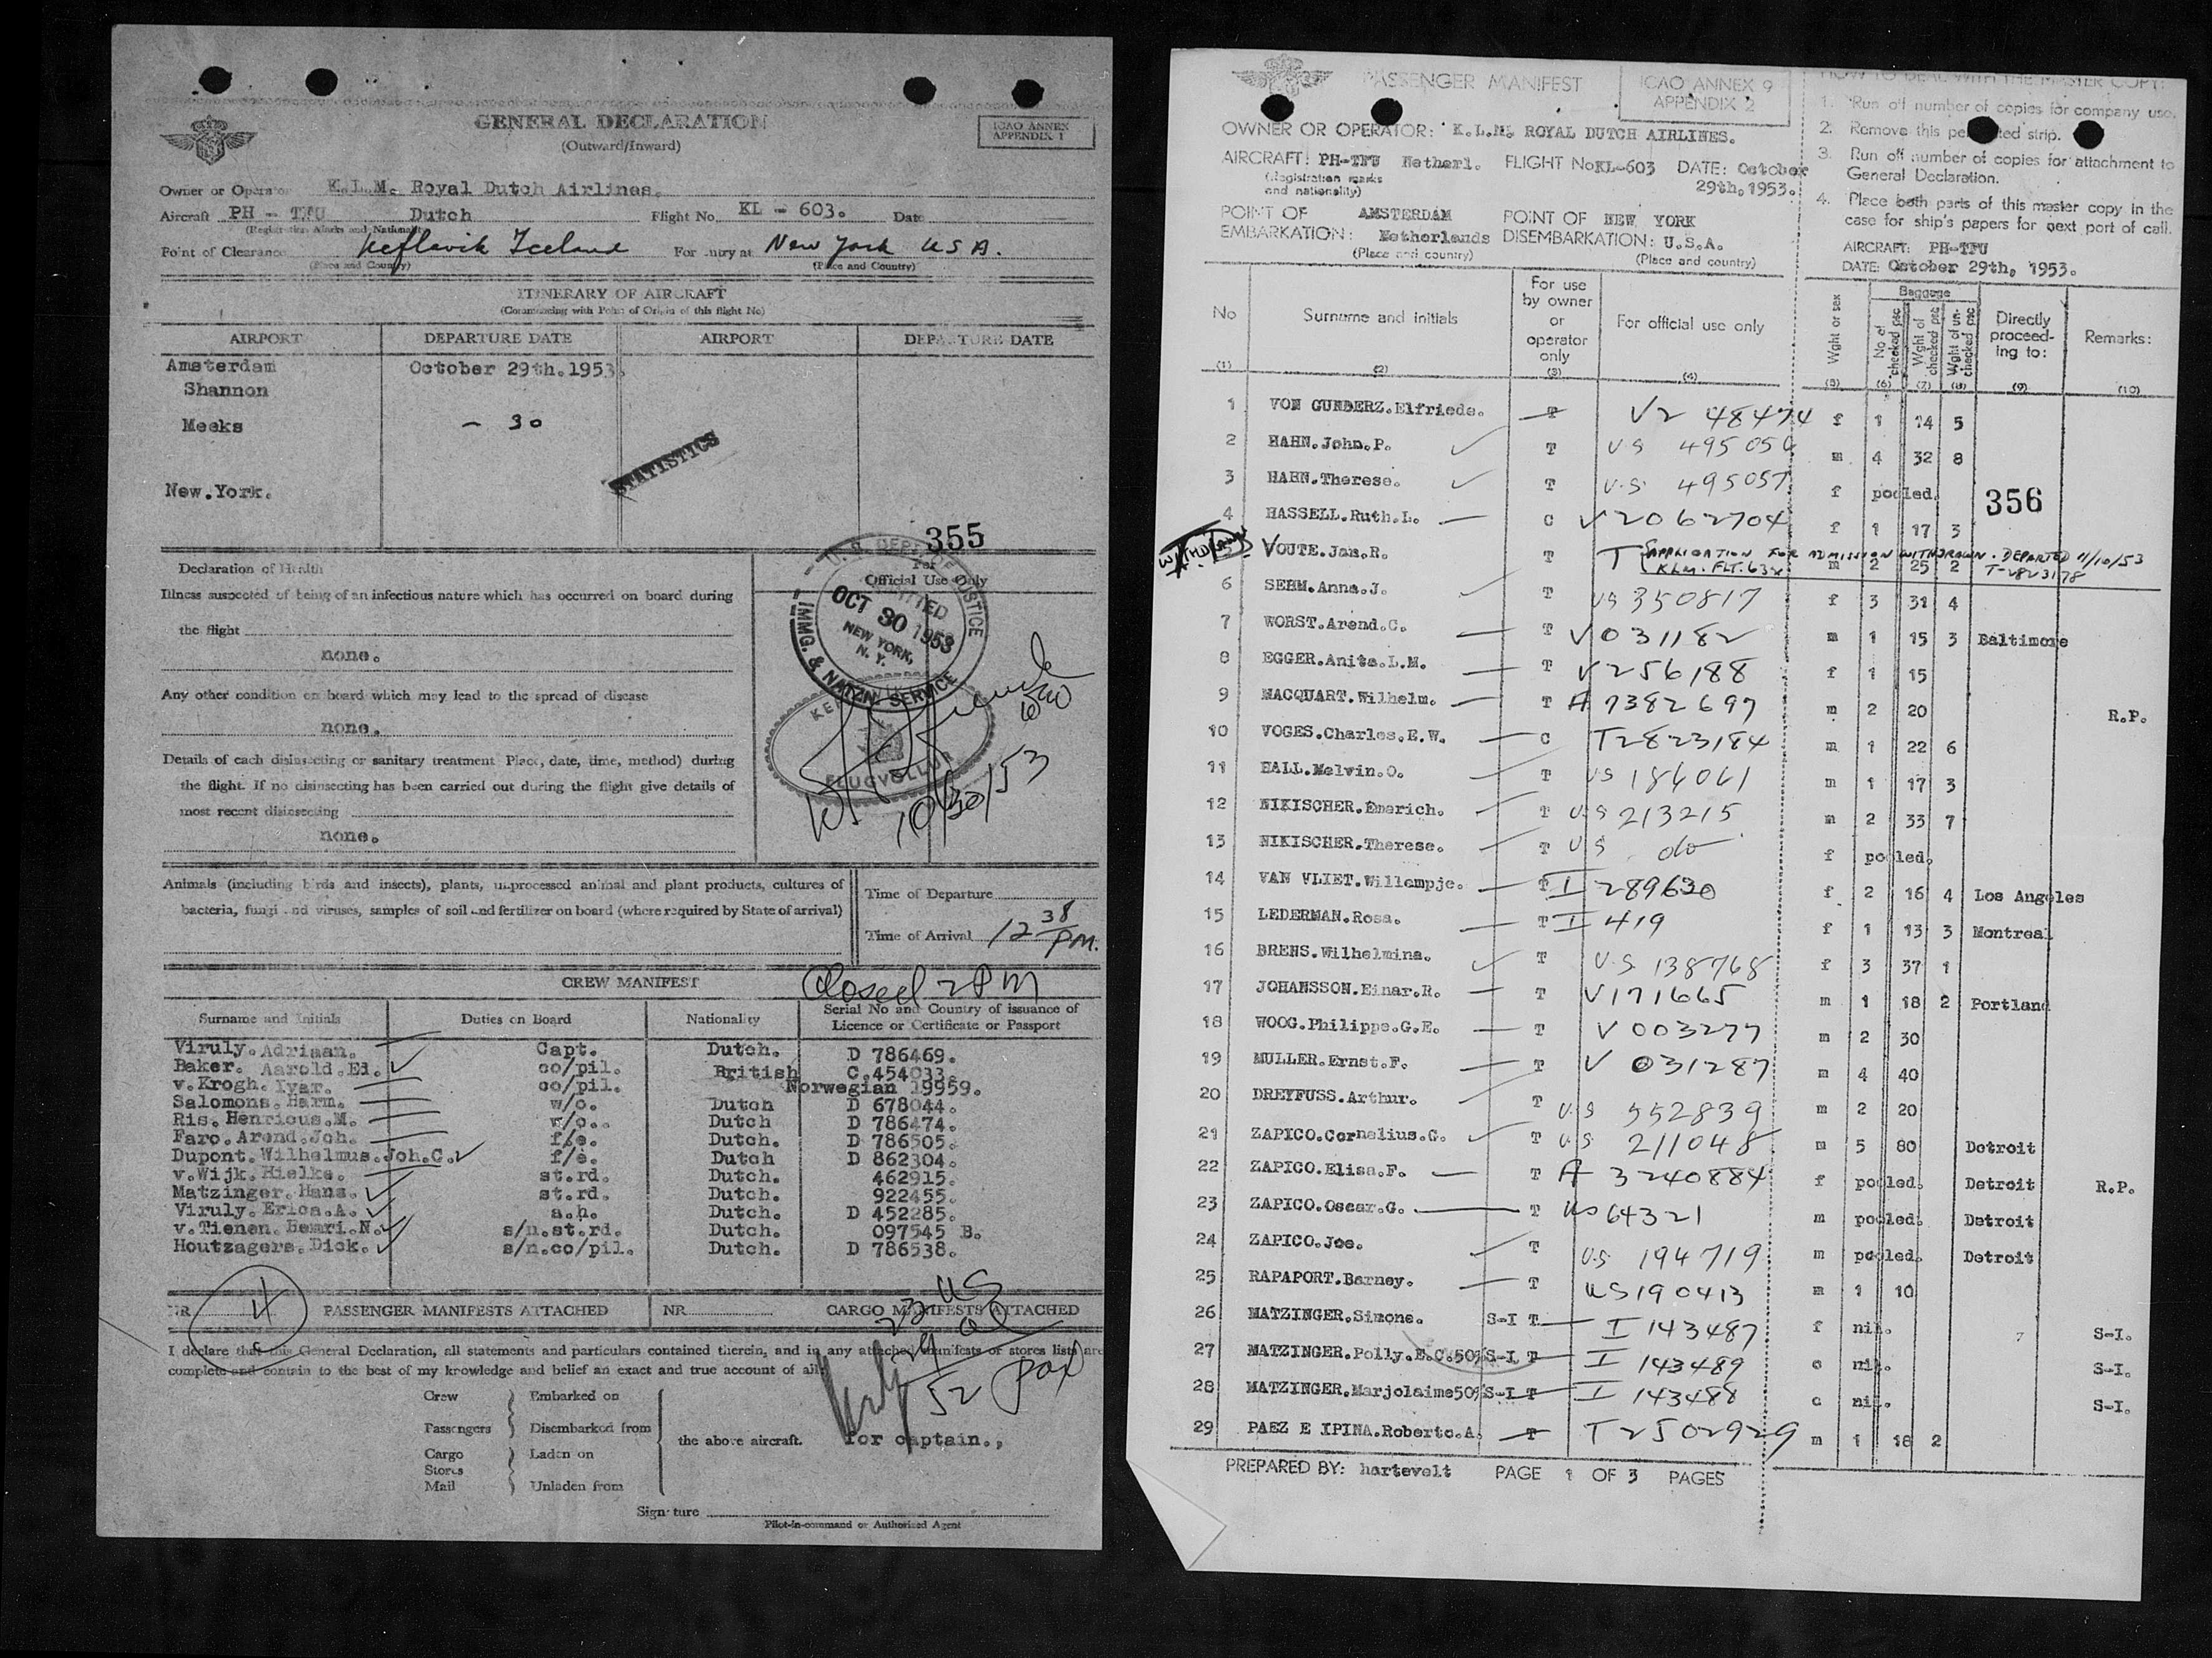 GENERAL DECLARATION
(Outward/Inward)
ICAO ANNEX
APPENDIX 1
Owner or Operator K.L.M. Royal Dutch Airlines.
Aircraft PH - TFU Dutch Flight No. KL - 603. Date
(Registration Marks and Nationality)
Point of Clearance Keflavik Iceland For entry at New York USA.
(Place and Country) (Place and Country)
ITINERARY OF AIRCRAFT
(Commencing with Point of Origin of this flight No)
AIRPORT DEPARTURE DATE AIRPORT DEPARTURE DATE
Amsterdam October 29th.1953.
Shannon
Meeks - 30
STATISTICS
New.York.
355
Declaration of Health
For
Official Use Only
Illness suspected of being of an infectious nature which has occurred on board during
the flight
none.
Any other condition on board which may lead to the spread of disease
none.
Details of each disinsecting or sanitary treatment Place, date, time, method) during
the flight. If no disinsecting has been carried out during the flight give details of
most recent disinsecting
none.
U.S. DEPT. OF JUSTICE
ADMITTED
OCT 30 1953
NEW YORK,
N. Y.
IMMG. & NATZN. SERVICE
FLUGVOLLUR
10/30/53
Animals (including birds and insects), plants, unprocessed animal and plant products, cultures of
bacteria, fungi and viruses, samples of soil and fertilizer on board (where required by State of arrival)
Time of Departure
Time of Arrival 12 38 PM.
CREW MANIFEST
Closed 2 PM
Surname and Initials Duties on Board Nationality Serial No and Country of issuance of
Licence or Certificate or Passport
Viruly. Adriaan. Capt. Dutch. D 786469.
Baker. Aarold.Ed. co/pil. British C.454033.
v.Krogh. Ivar. co/pil. Norwegian 19959.
Salomons. Harm. w/o. Dutch D 678044.
Ris. Henricus.M. w/o.. Dutch D 786474.
Faro. Arend.Joh. f/e. Dutch. D 786505.
Dupont. Wilhelmus.Joh.C. f/e. Dutch D 862304.
v.Wijk. Hielke. st.rd. Dutch. 462915.
Matzinger. Hans. st.rd. Dutch. 922455.
Viruly. Erica.A. a.h. Dutch. D 452285.
v.Tienen. Hemri.N. s/n.st.rd. Dutch. 097545 B.
Houtzagers. Dick. s/n.co/pil. Dutch. D 786538.
NR 4 PASSENGER MANIFESTS ATTACHED NR CARGO MANIFESTS ATTACHED
23 US
29
52 pax
I declare that this General Declaration, all statements and particulars contained therein, and in any attached manifests or stores lists are
complete and contain to the best of my knowledge and belief an exact and true account of all
Crew Embarked on
Passengers Disembarked from
the above aircraft. for captain.,
Cargo Laden on
Stores
Mail Unladen from
Signature
Pilot-in-command or Authorized Agent
PASSENGER MANIFEST
ICAO ANNEX 9
APPENDIX 2
OWNER OR OPERATOR: K.L.M. ROYAL DUTCH AIRLINES.
AIRCRAFT: PH-TFU Netherl. FLIGHT No KL-603 DATE: October
29th,1953.
(Registration marks
and nationality)
POINT OF AMSTERDAM POINT OF NEW YORK
EMBARKATION: Netherlands DISEMBARKATION: U.S.A.
(Place and country) (Place and country)
HOW TO DEAL WITH THE MASTER COPY:
1. Run off number of copies for company use.
2. Remove this strip.
3. Run off number of copies for attachment to
General Declaration.
4. Place both parts of this master copy in the
case for ship's papers for next port of call.
AIRCRAFT: PH-TFU
DATE: October 29th, 1953.
No Surname and initials For use by owner or operator only For official use only Wght or sex Baggage No of checked pcs Wght of checked pcs Wght of unchecked pcs Directly proceeding to: Remarks:
(1) (2) (3) (4) (5) (6) (7) (8) (9) (10)
1 VON GUNDERZ.Elfriede. T V2 48474 f 1 14 5
2 HAHN.John.P. T US 495056 m 4 32 8
3 HAHN.Therese. T U.S. 495057 f pooled.
356
4 HASSELL.Ruth.L. C V2062704 f 1 17 3
WITHDRAWN VOUTE.Jan.R. T T APPLICATION FOR ADMISSION WITHDRAWN. DEPARTED 11/10/53
KLM. FLT. 63 m 2 25 2
6 SEHM.Anna.J. T US 350817 f 3 31 4
7 WORST.Arend.C. T V031182 m 1 15 3 Baltimore
8 EGGER.Anita.L.M. T V256188 f 1 15
9 MACQUART.Wilhelm. T A 7382697 m 2 20 R.P.
10 VOGES.Charles.E.W. C T2823184 m 1 22 6
11 HALL.Melvin.O. T US 186061 m 1 17 3
12 NIKISCHER.Emerich. T US 213215 m 2 33 7
13 NIKISCHER.Therese. T US do f pooled.
14 VAN VLIET.Willempje. T I 289630 f 2 16 4 Los Angeles
15 LEDERMAN.Rosa. T I 419 f 1 13 3 Montreal
16 BRENS.Wilhelmina. T U.S 138768 f 3 37 1
17 JOHANSSON.Einar.R. T V171665 m 1 18 2 Portland
18 WOOG.Philippe.G.E. T V 003277 m 2 30
19 MULLER.Ernst.F. T V 031287 m 4 40
20 DREYFUSS.Arthur. T U.S 552839 m 2 20
21 ZAPICO.Cornelius.G. T US 211048 m 5 80 Detroit
22 ZAPICO.Elisa.F. T A 3240884 f pooled. Detroit R.P.
23 ZAPICO.Oscar.G. T US 64321 m pooled. Detroit
24 ZAPICO.Joe. T US 194719 m pooled. Detroit
25 RAPAPORT.Barney. T US190413 m 1 10
26 MATZINGER.Simone. S-I T I 143487 f nil. S-I.
27 MATZINGER.Polly.E.C.50% S-I T I 143489 c nil. S-I.
28 MATZINGER.Marjolaine50% S-I T I 143488 c nil. S-I.
29 PAEZ E IPINA.Roberto.A. T T2502929 m 1 18 2
PREPARED BY: hartevelt PAGE 1 OF 3 PAGES